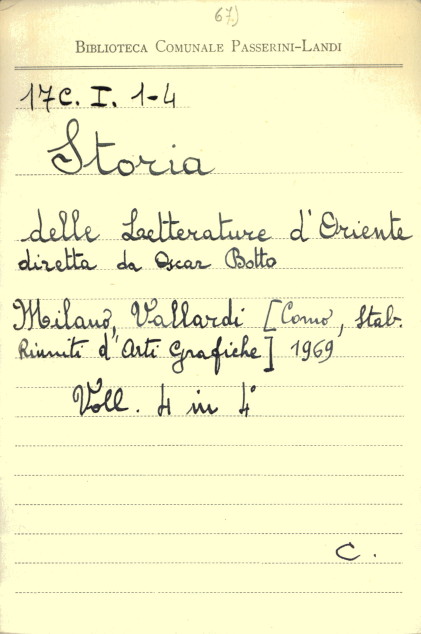 67)
BIBLIOTECA COMUNALE PASSERINI-LANDI
17C. I. 1-4
Storia
delle Laetterature d'Oriente
diretta da Oscar Botto
Milano, Vallardi [Como, Stab.
Riuniti d'Arti Grafiche] 1969
Voll. 4 in 4°
C.